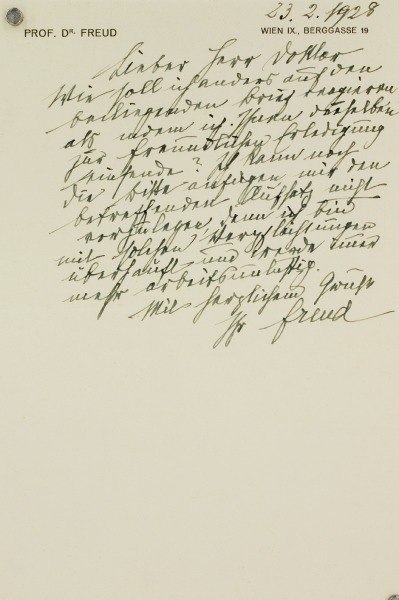 23.2.1928
PROF. DR. FREUD
WIEN IX., BERGGASSE 19
Lieber Herr Doktor
Wie soll ich anders auf den
beiliegenden Brief reagieren
als indem ich Ihnen denselben
zur freundlichen Erledigung
einsende? Ich kann noch
die Bitte anfügen mir den
betreffenden Aufsatz nicht
vorzulegen, denn ich bin
mit solchen Verpflichtungen
überhäuft und werde immer
mehr arbeitsunlustig.
Mit herzlichem Gruß
Ihr Freud